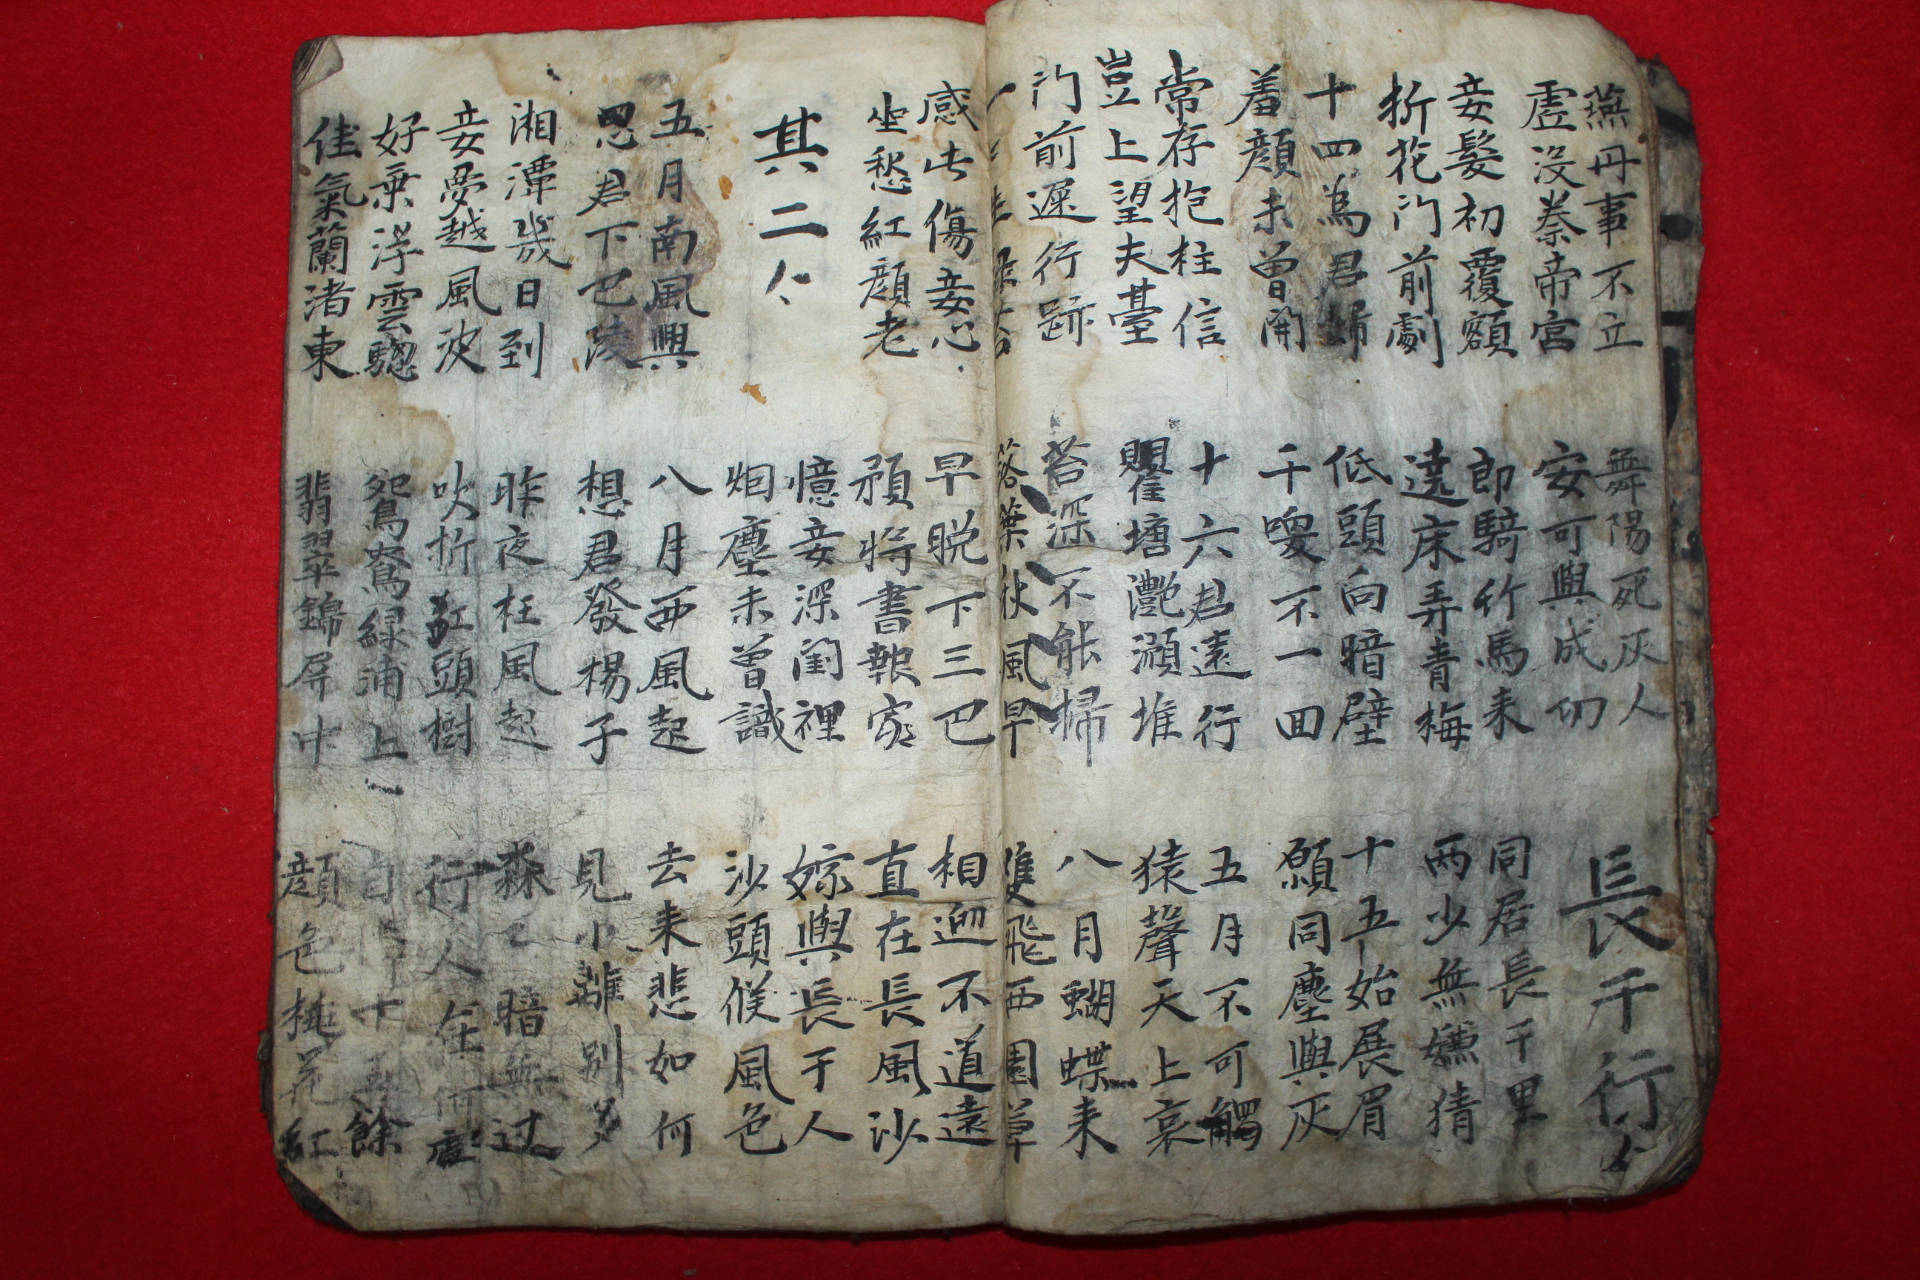 燕丹事不立
虛没秦帝宮
舞陽死灰人
安可與成功
長千行
妾髮初覆額
折花门前劇
郎騎竹馬来
遶床弄青梅
同居長干里
两少無嫌猜
十四為君婦
羞顔未曽開
低頭向暗壁
千喚不一回
十五始展眉
願同塵與灰
常存抱柱信
豈上望夫䑓
十六君遠行
瞿塘灔澦堆
五月不可觸
猿聲天上哀
门前遲行跡
一 生綠苔
苔深不能掃
落葉秋風早
八月蝴蝶来
雙飛西園草
感此傷妾心
坐愁紅顔老
早晩下三巴
預将書報家
相迎不道遠
直在長風沙
其二
憶妾深閨裡
烟塵未曽識
嫁與長干人
沙頭候風色
五月南風興
思君下巴陵
八月西風起
想君發楊子
去来悲如何
見小離別多
湘潭幾日到
妾夢越風波
昨夜狂風起
吹折江頭樹
淼〻暗無过
行人在何處
好乘浮雲驄
佳氣蘭渚東
鴛鴦綠浦上
翡翠錦屏中
自憐十五餘
顔色桃花紅